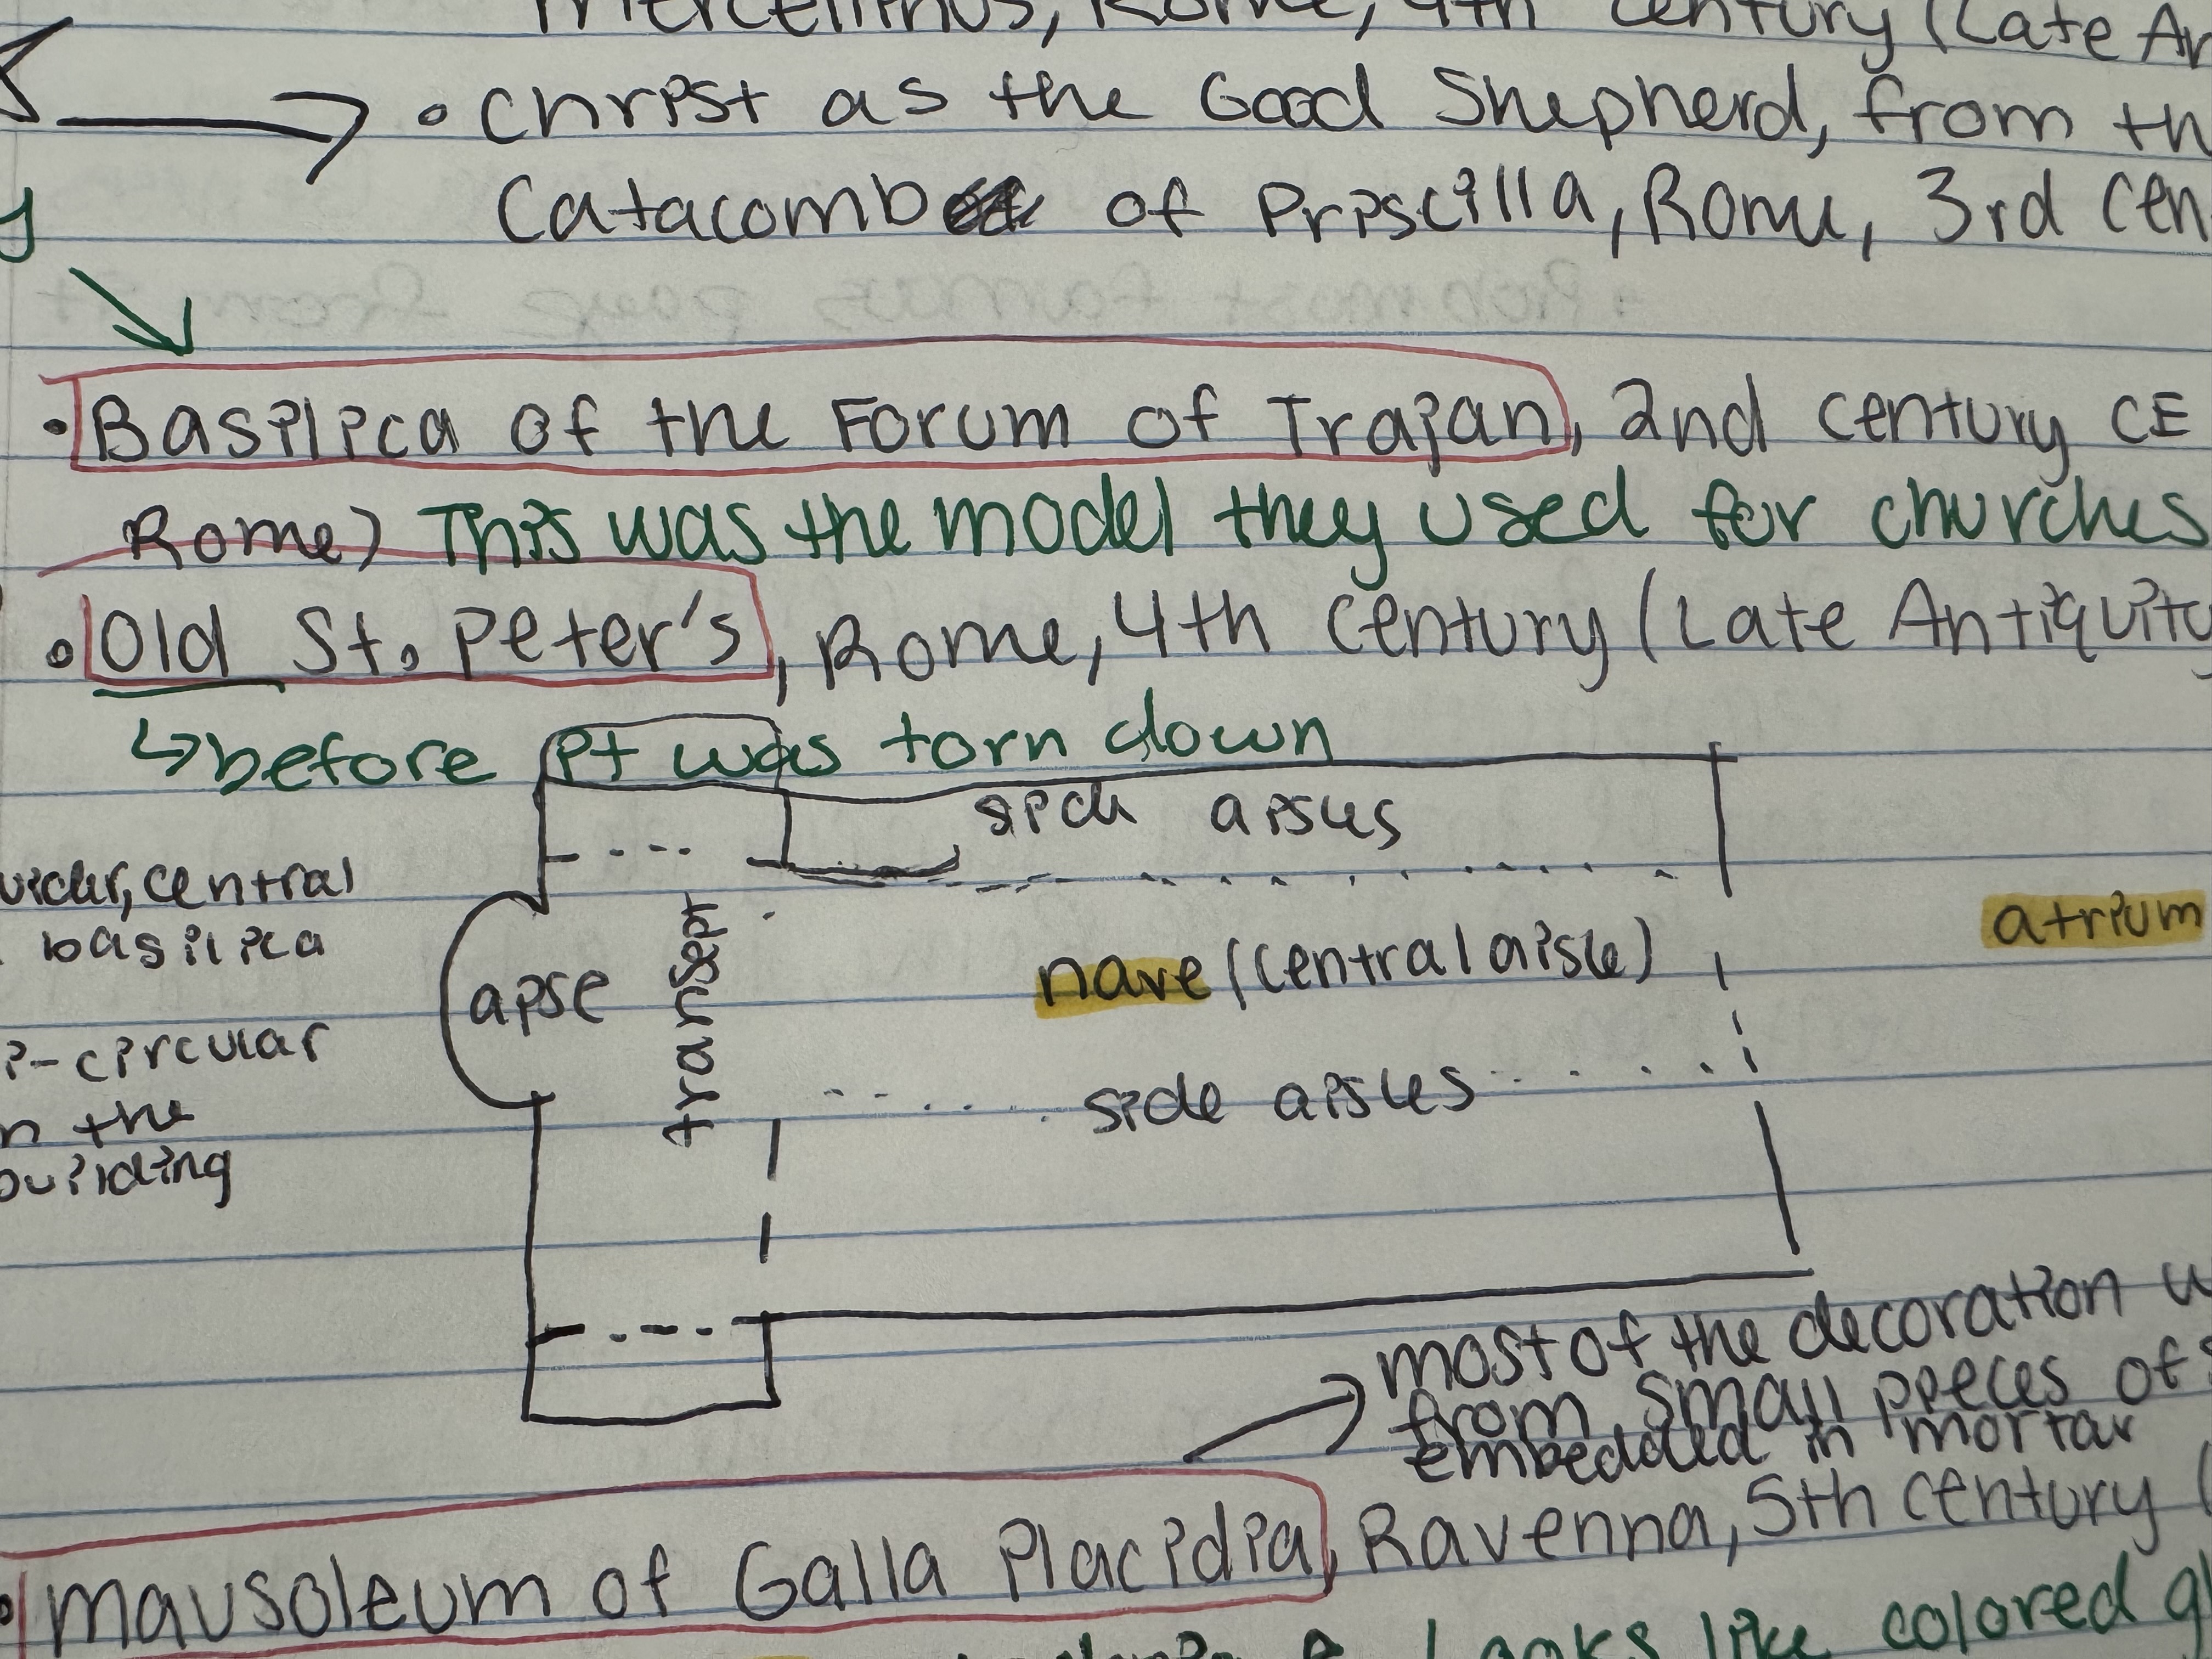 Mercellinus, Rome, 4th century (Late An
• Christ as the Good Shepherd, from th
Catacomb of Priscilla, Rome, 3rd cen
y
• Basilica of the Forum of Trajan, 2nd century CE
Rome) This was the model they used for churches
• Old St. Peter's, Rome, 4th century (Late Antiquity
↳ before it was torn down
side aisles
central
basilica
atrium
nave (central aisle)
apse
transept
i-circular
n the
building
side aisles
most of the decoration w
from small pieces of s
embedded in mortar
• Mausoleum of Galla Placidia, Ravenna, 5th century (
Looks like colored gl